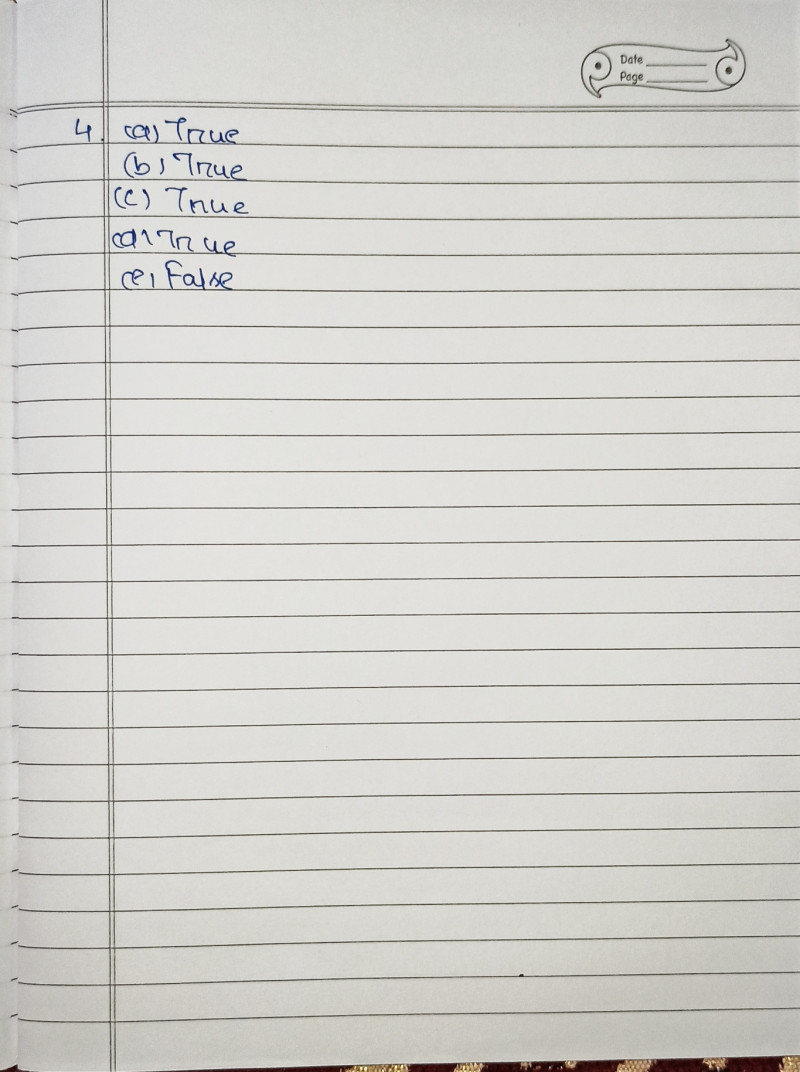 Date
Page
4. (a) True
(b) True
(c) True
(d) True
(e) False